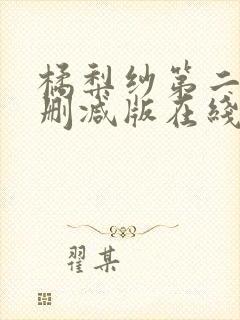 橘梨纱第二
删减版在綫
翟某